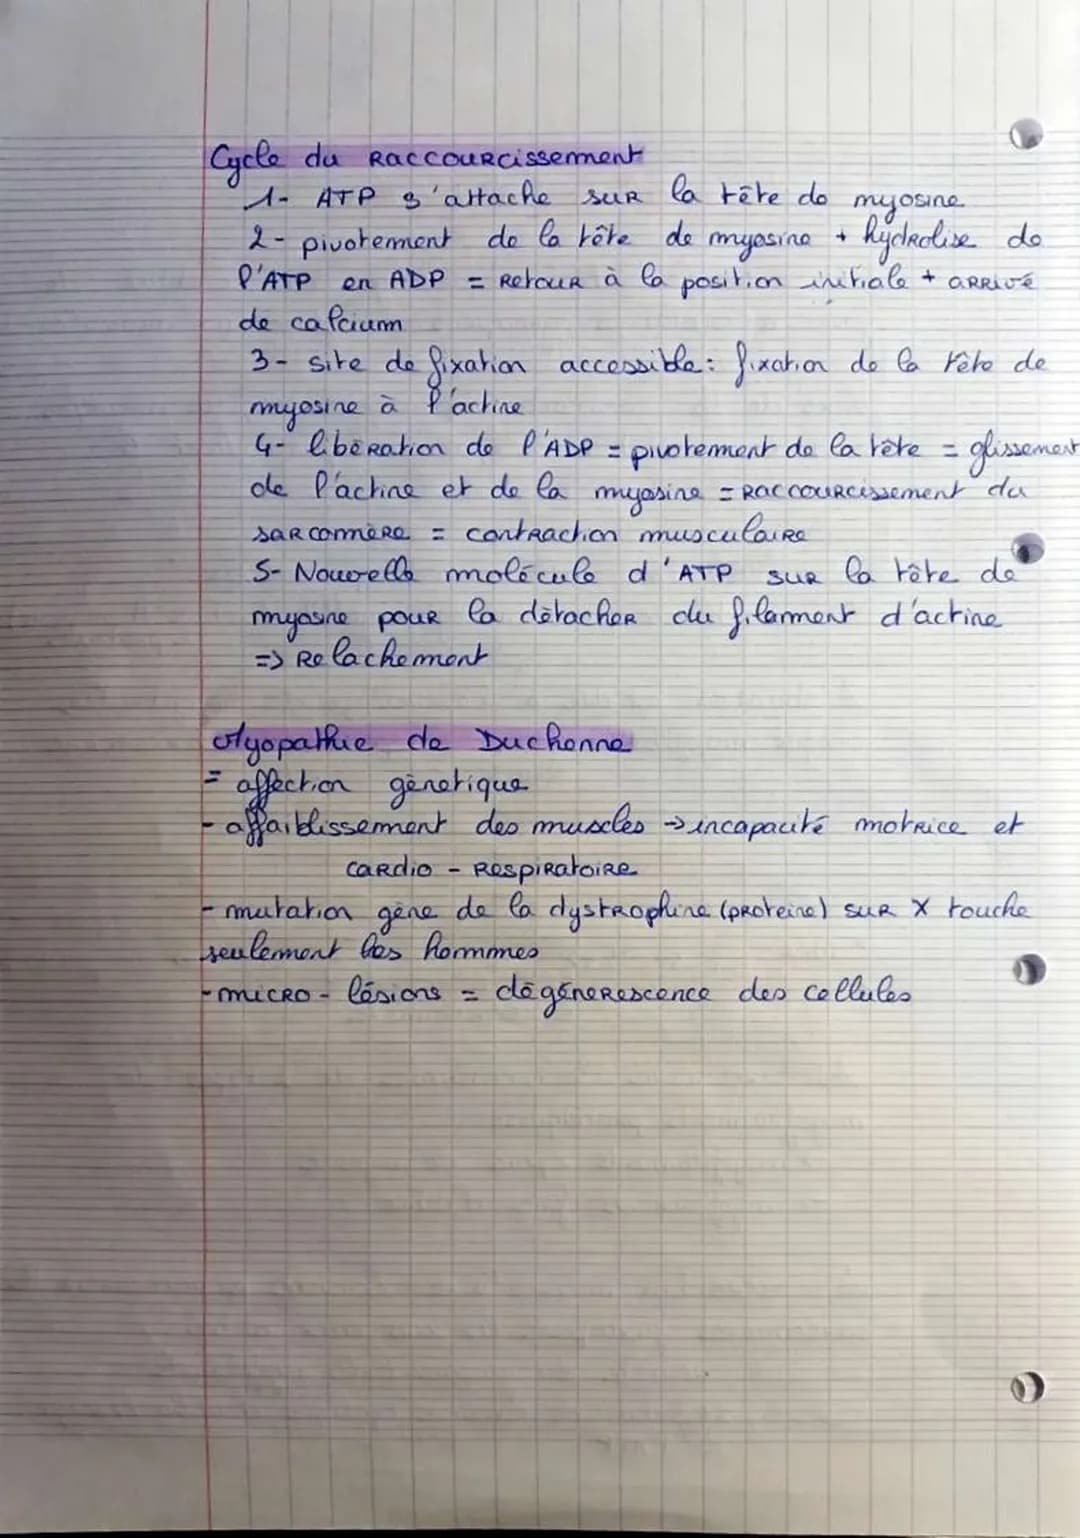 Cycle du Raccourcissement
1- ATP s'attache sur la tête de myosine
2- pivotement de la tête de myosine + hydrolise de
l'ATP en ADP = Retour à la position initiale + arrivé
de calcium
3- site de fixation accessible : fixation de la tête de
myosine à l'actine
4- libération de l'ADP = pivotement de la tête = glissement
de l'actine et de la myosine = Raccourcissement du
sarcomère = contraction musculaire
5- Nouvelle molécule d'ATP sur la tête de
myosine pour la détacher du filament d'actine
=> Relachement
Myopathie de Duchenne
= affection génétique
- affaiblissement des muscles → incapacité motrice et
cardio - Respiratoire
- mutation gène de la dystrophine (proteine) sur X touche
seulement les hommes
- micro - lésions = dégénerescence des cellules